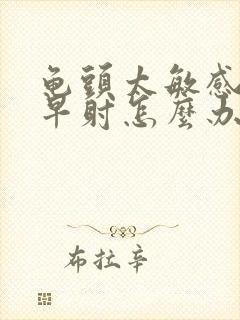 龟頭太敏感
早射怎麼办
布拉辛